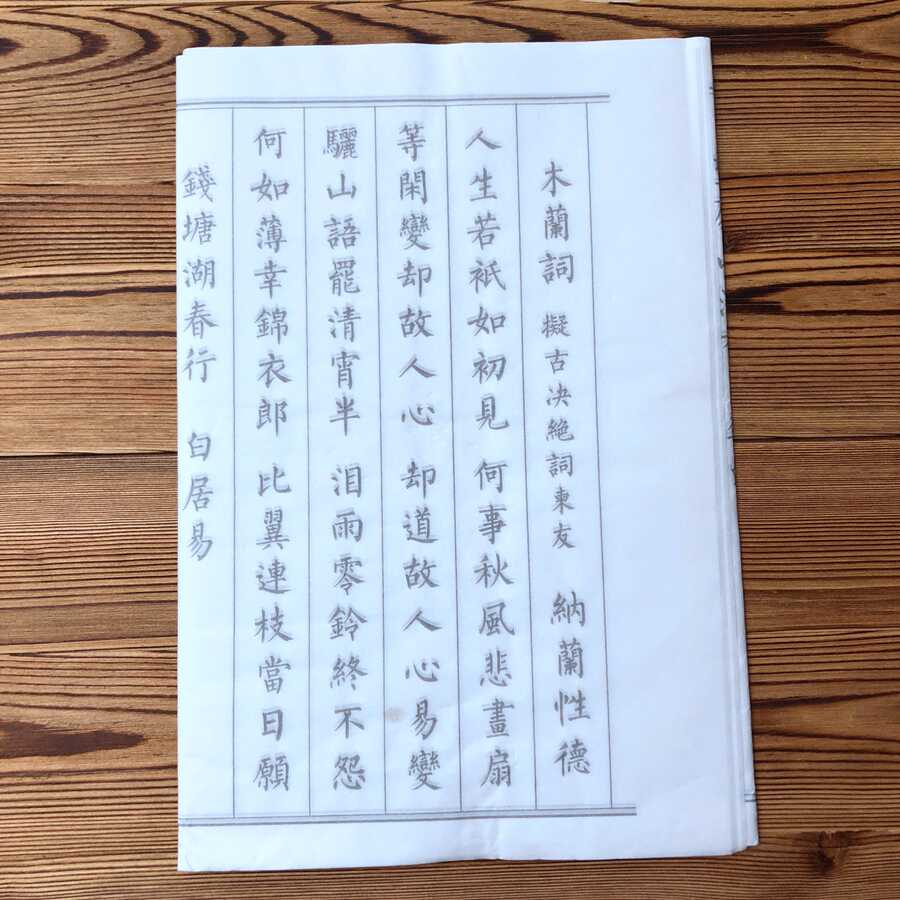 木蘭詞 擬古决絶詞柬友 納蘭性德
人生若衹如初見 何事秋風悲畫扇
等閑變却故人心 却道故人心易變
驪山語罷清宵半 泪雨零鈴終不怨
何如薄幸錦衣郎 比翼連枝當日願
錢塘湖春行 白居易